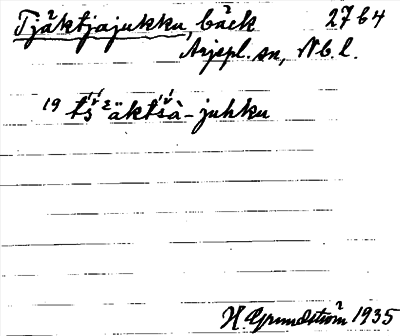 Tjäktjajukku, bäck 2764
Arjepl. sn, Nb. l.
19 tš́ᵋäktšà-juhku
H. Grundström 1935